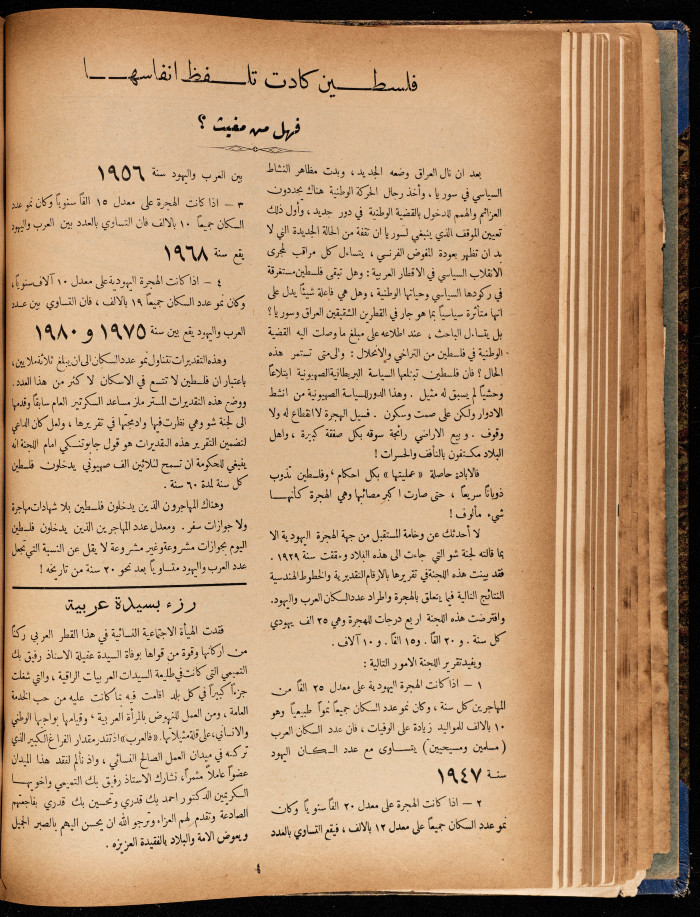 فلسطين كادت تلفظ انفاسها
فهل من مغيث ؟
بعد ان نال العراق وضعه الجديد ، وبدت مظاهر النشاط
السياسي في سوريا ، وأخذ رجال الحركة الوطنية هناك يجددون
العزائم والهمم للدخول بالقضية الوطنية في دور جديد ، وأول ذلك
تعيين الموقف الذي ينبغي لسوريا ان تقفه من الحالة الجديدة التي لا
بد ان تظهر بعودة المفوض الفرنسي ، يتساءل كل مراقب لمجرى
الانقلاب السياسي في الاقطار العربية : وهل تبقى فلسطين مستغرقة
في ركودها السياسي وحياتها الوطنية ، وهل هي فاعلة شيئاً يدل على
انها متأثرة سياسياً بما هو جار في القطرين الشقيقين العراق وسوريا ؟
بل يتساءل الباحث ، عند اطلاعه على مبلغ ما وصلت اليه القضية
الوطنية في فلسطين من التراخي والانحلال : والى متى تستمر هذه
الحال ؟ فان فلسطين تبتلعها السياسة البريطانية الصهيونية ابتلاعاً
وحشياً لم يسبق له مثيل . وهذا الدور للسياسة الصهيونية من انشط
الادوار ولكن على صمت وسكون . فسيل الهجرة لا انقطاع له ولا
وقوف . وبيع الاراضي رائجة سوقه بكل صفقة كبيرة ، واهل
البلاد مكتفون بالتأفف والحسرات !
فالابادة حاصلة « عمليتها » بكل احكام ، وفلسطين تذوب
ذوباناً سريعاً ، حتى صارت اكبر مصائبها وهي الهجرة كأنهـا
شيء مألوف !
لا أحدثك عن وخامة المستقبل من جهة الهجرة اليهودية الا
بما قالته لجنة شو التي جاءت الى هذه البلاد ووقفت سنة ١٩٢٩ .
فقد بينت هذه اللجنة في تقريرها بالارقام التقديرية والخطوط الهندسية
النتائج التالية فيما يتعلق بالهجرة واطراد عدد السكان العرب واليهود .
وافترضت هذه اللجنة اربع درجات للهجرة وهي ٢٥ الف يهودي
كل سنة . و ٢٠ الفاً . و ١٥ الفاً . و ١٠ آلاف .
ويفيد تقرير اللجنة الامور التالية :
١ – اذا كانت الهجرة اليهودية على معدل ٢٥ الفاً من
المهاجرين كل سنة ، وكان نمو عدد السكان جميعاً نمواً طبيعياً وهو
١٠ بالالف للمواليد زيادة على الوفيات ، فان عدد السكان العرب
( مسلمين ومسيحيين ) يتساوى مع عدد السكان اليهود
سنة ١٩٤٧
٢ – اذا كانت الهجرة على معدل ٢٠ الفاً سنوياً وكان
نمو عدد السكان جميعاً على معدل ١٢ بالالف ، فيقع التساوي بالعدد
بين العرب واليهود سنة ١٩٥٦
٣ – اذا كانت الهجرة على معدل ١٥ الفاً سنوياً وكان نمو عدد
السكان جميعاً ١٠ بالالف فان التساوي بالعدد بين العرب واليهود
يقع سنة ١٩٦٨
٤ – اذا كانت الهجرة اليهودية على معدل ١٠ آلاف سنوياً ،
وكان نمو عدد السكان جميعاً ١٩ بالالف ، فان التساوي بين عدد
العرب واليهود يقع بين سنة ١٩٧٥ و ١٩٨٠
وهذه التقديرات تتناول نمو عدد السكان الى ان يبلغ ثلاثة ملايين ،
باعتبار ان فلسطين لا تتسع في الاسكان لا كثر من هذا العدد .
ووضع هذه التقديرات المستر ملز مساعد السكرتير العام سابقاً وقدمها
الى لجنة شو وهي نظرت فيها وادمجتها في تقريرها ، ولعل كان الداعي
لتضمين التقرير هذه التقديرات هو قول جابوتنسكي امام اللجنة انه
ينبغي للحكومة ان تسمح لثلاثين الف صهيوني يدخلون فلسطين
كل سنة لمدة ٦٠ سنة .
وهناك المهاجرون الذين يدخلون فلسطين بلا شهادات مهاجرة
ولا جوازات سفر . ومعدل عدد المهاجرين الذين يدخلون فلسطين
اليوم بجوازات مشروعة وغير مشروعة لا يقل عن النسبة التي تجعل
عدد العرب واليهود متساوياً بعد نحو ٢٠ سنة من تاريخه !
رزء بسيدة عربية
فقدت الهيأة الاجتماعية النسائية في هذا القطر العربي ركناً
من اركانها وقوة من قواها بوفاة السيدة عقيلة الاستاذ رفيق بك
التميمي التي كانت في طليعة السيدات العربيات الراقية ، والتي شغلت
جزءاً كبيراً في كل بلد اقامت فيه بما كانت عليه من حب الخدمة
العامة ، ومن العمل للنهوض بالمرأة العربية ، وقيامها بواجبها الوطني
والانساني ، على قلة مثيلاتها . « فالعرب » اذ تقدر مقدار الفراغ الكبير الذي
تركته في ميدان العمل الصالح النسائي ، واذ نألم لفقد هذا الميدان
عضواً عاملاً مثمراً ، نشارك الاستاذ رفيق بك التميمي واخويها
الكريمين الدكتور احمد بك قدري وتحسين بك قدري بفاجعتهم
الصادعة ونقدم لهم العزاء ونرجو الله ان يحسن اليهم بالصبر الجميل
ويعوض الامة والبلاد بالفقيدة العزيزه .
٤